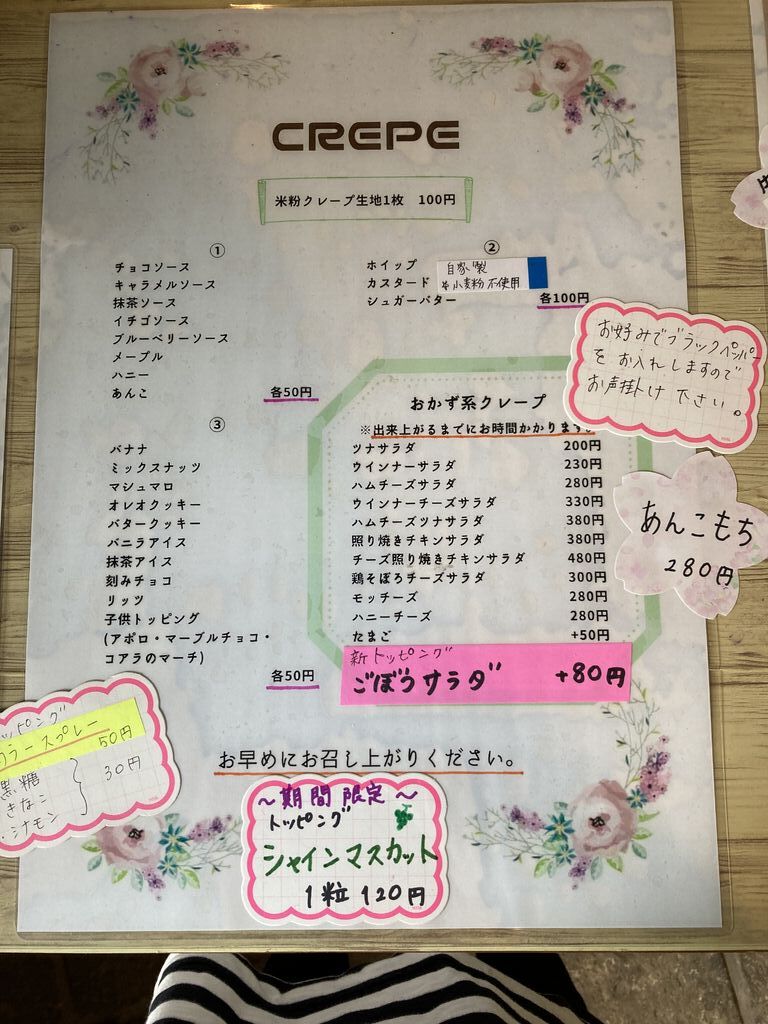 CREPE
米粉クレープ生地1枚 100円
①
チョコソース
キャラメルソース
抹茶ソース
イチゴソース
ブルーベリーソース
メープル
ハニー
あんこ
各50円
②
ホイップ
カスタード
自家製
※小麦粉不使用
シュガーバター
各100円
お好みでブラックペッパー
をお入れしますので
お声掛け下さい。
③
バナナ
ミックスナッツ
マシュマロ
オレオクッキー
バタークッキー
バニラアイス
抹茶アイス
刻みチョコ
リッツ
子供トッピング
(アポロ・マーブルチョコ・
コアラのマーチ)
各50円
おかず系クレープ
※出来上がるまでにお時間かかります。
ツナサラダ 200円
ウインナーサラダ 230円
ハムチーズサラダ 280円
ウインナーチーズサラダ 330円
ハムチーズツナサラダ 380円
照り焼きチキンサラダ 380円
チーズ照り焼きチキンサラダ 480円
鶏そぼろチーズサラダ 300円
モッチーズ 280円
ハニーチーズ 280円
たまご +50円
新トッピング
ごぼうサラダ +80円
あんこもち
280円
ッピング
カラースプレー 50円
黒糖
きなこ
・シナモン
30円
お早めにお召し上がりください。
～期間限定～
トッピング
シャインマスカット
1粒 120円